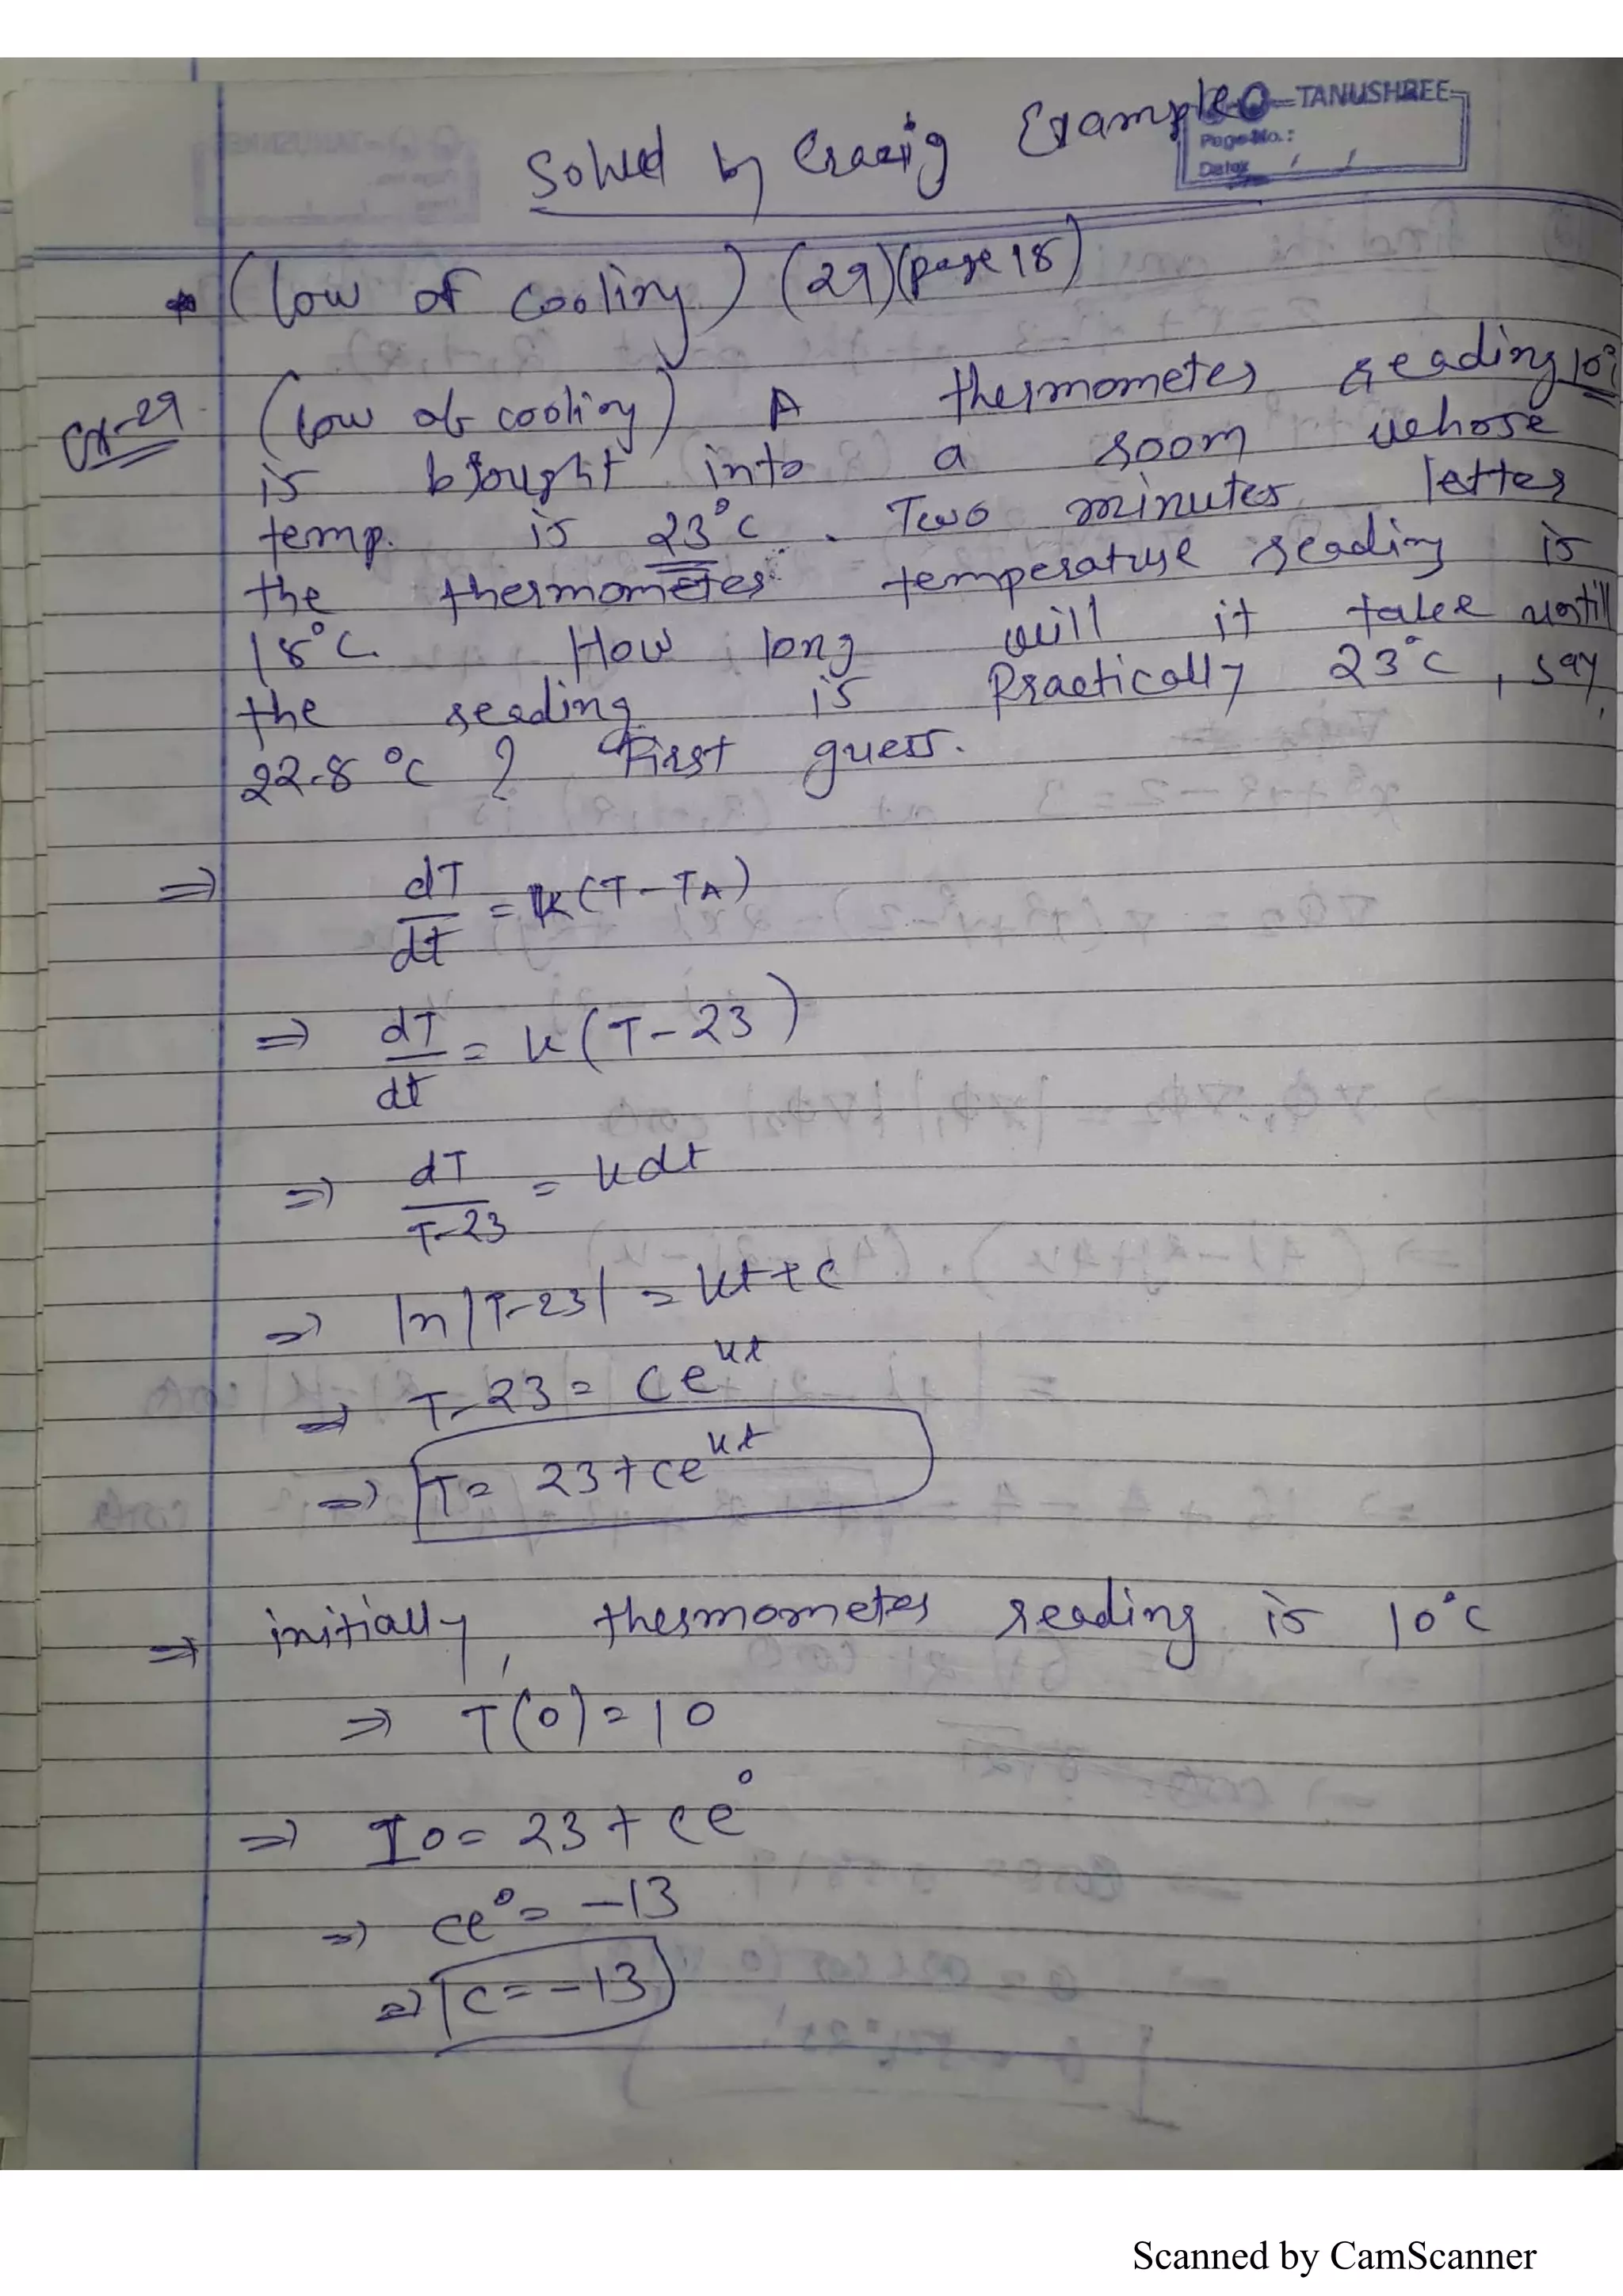 TANUSHREE
Page No.:
Date: / /
Solved by Example
* (Low of cooling) (29)(page 18)
Ex-29 (Low of cooling) A thermometer reading 10°
is brought into a room whose
temp. is 23°C. Two minutes letter
the thermometer temperature reading is
18°C. How long will it take until
the reading is Practically 23°C, say,
22.8°C ? First guess.
⇒ dT/dt = k(T-TA)
⇒ dT/dt = k(T-23)
⇒ dT/T-23 = kdt
⇒ ln|T-23| = kt+c
⇒ T-23 = Ce^kt
⇒ T = 23+ce^kt
⇒ initially, thermometer reading is 10°C
⇒ T(0)=10
⇒ 10 = 23+ce^0
⇒ ce^0 = -13
⇒ C = -13
Scanned by CamScanner